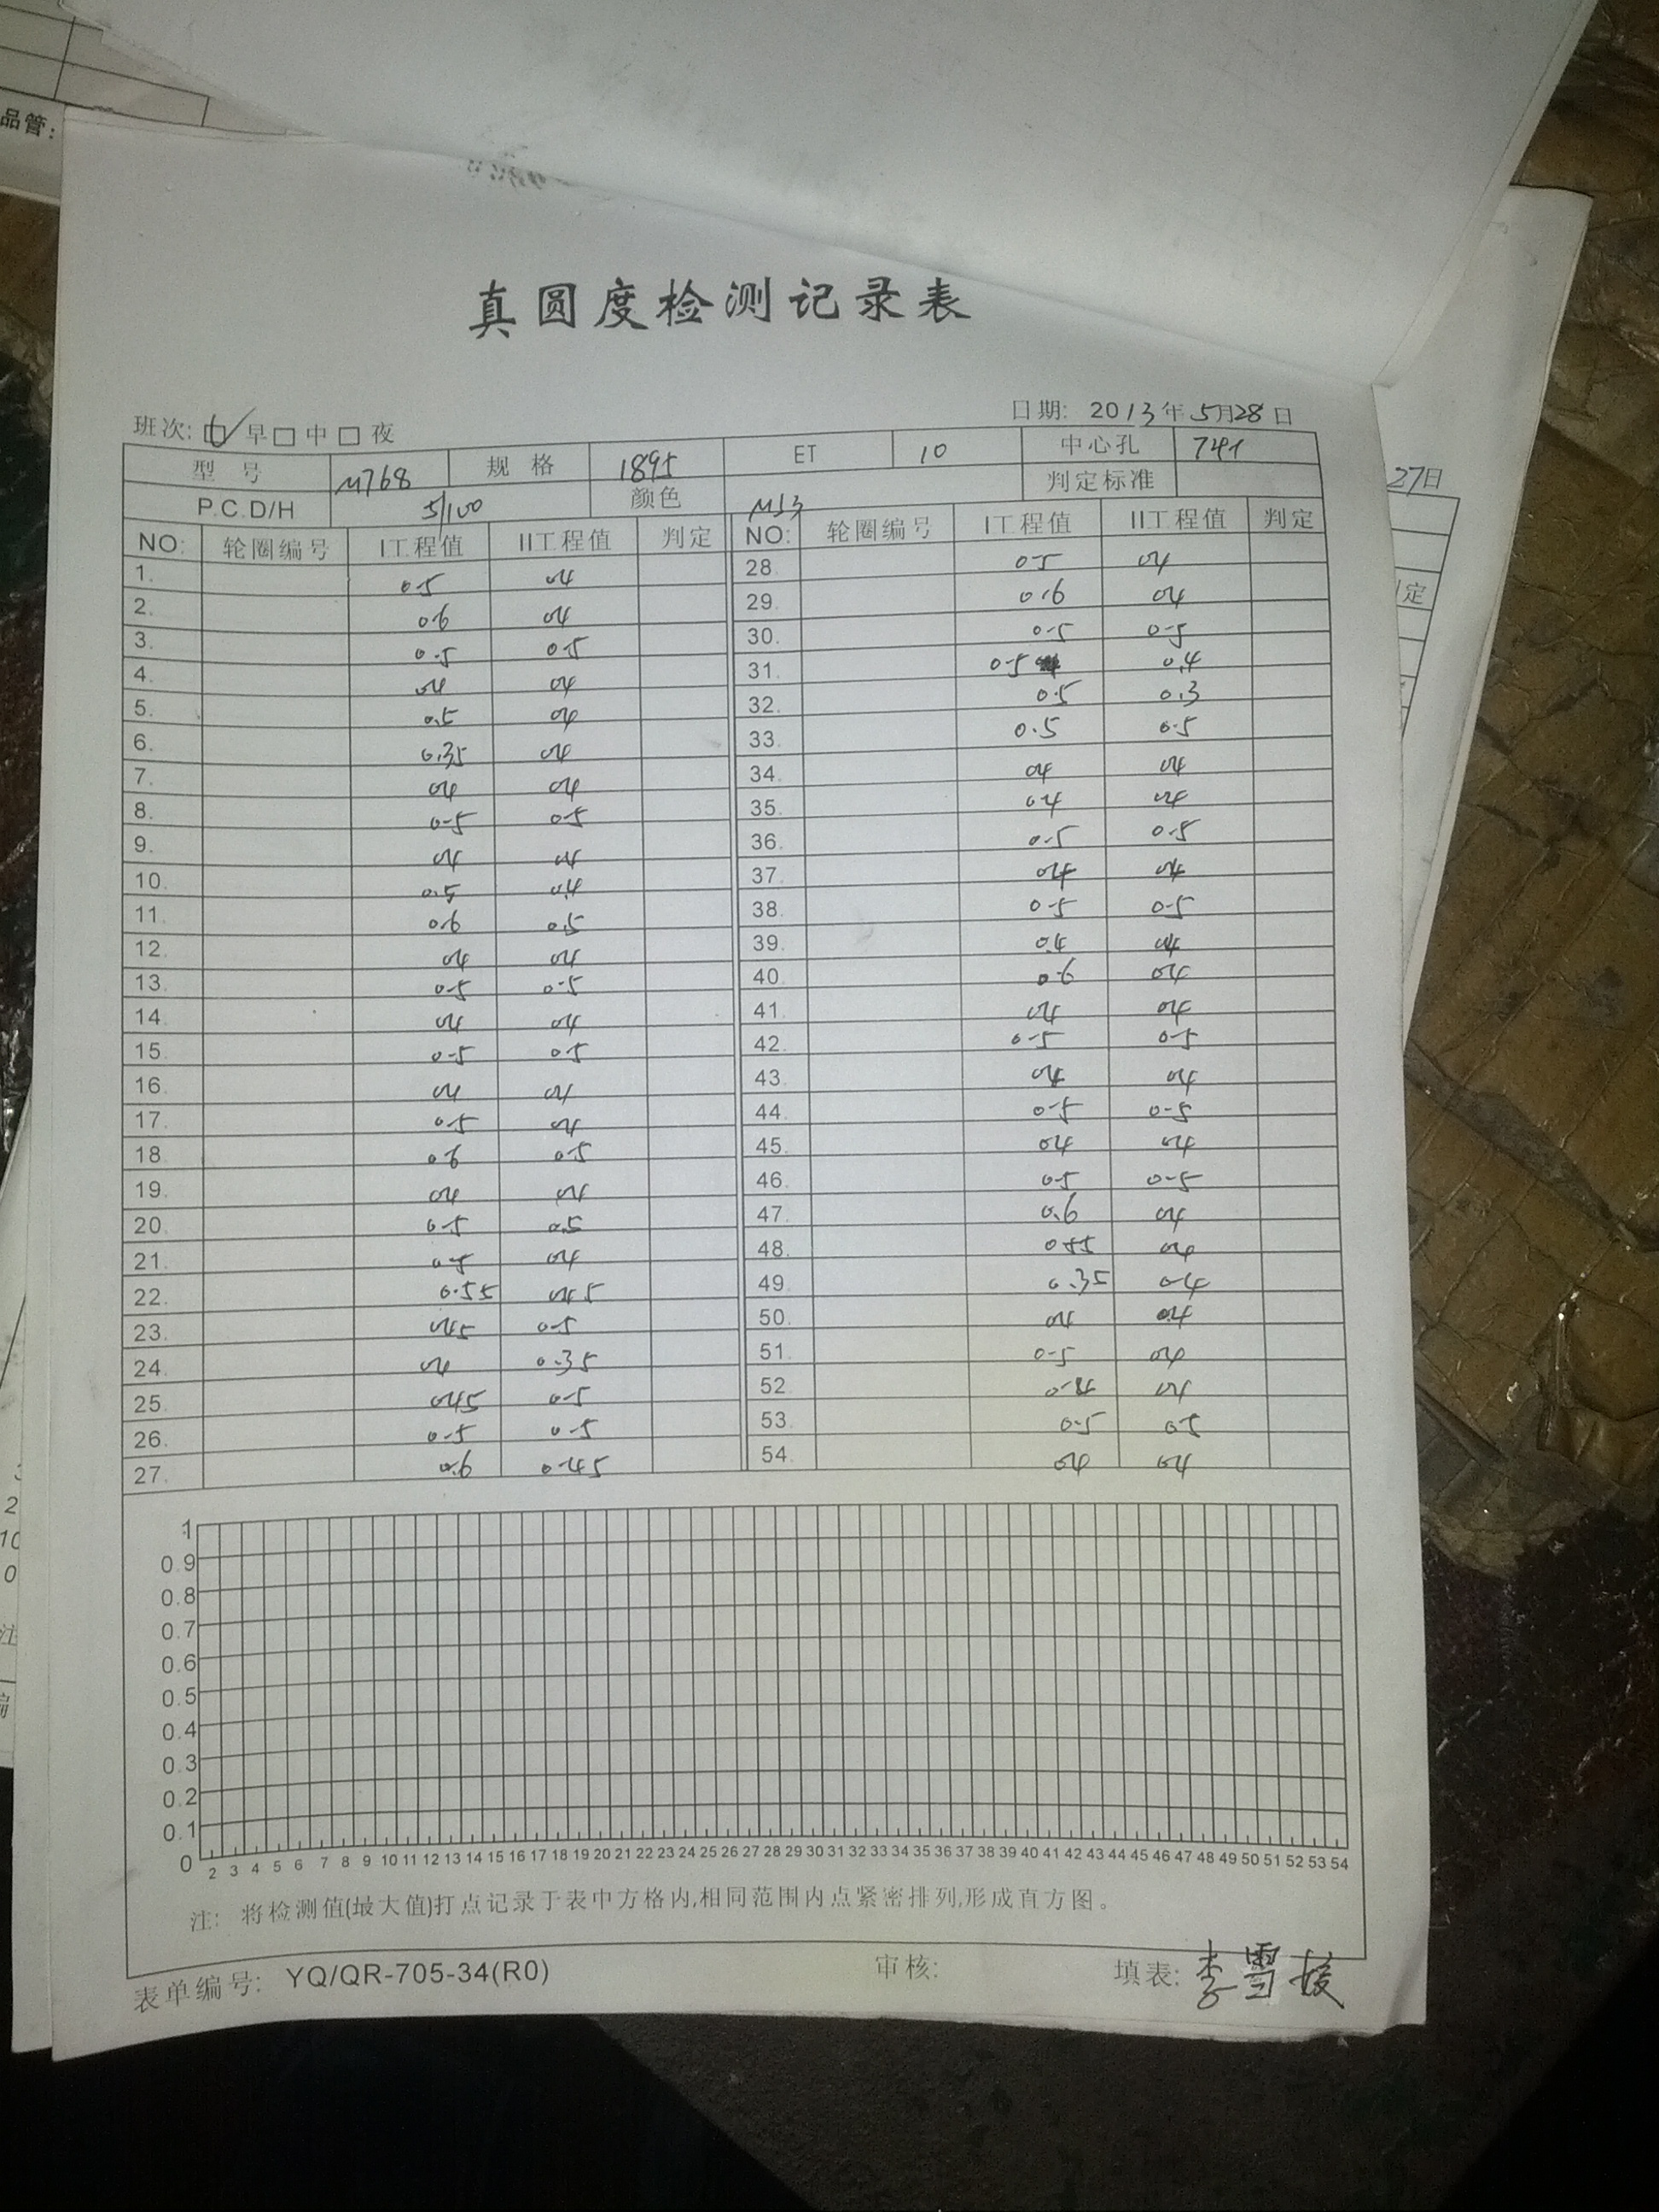 品管:
真圆度检测记录表
班次: ☑ 早 □ 中 □ 夜 日期: 2013年5月28日
型号 M768 规格 1895 ET 10 中心孔 741
P.C.D/H 5/100 颜色 M13 判定标准
NO: 轮圈编号 I工程值 II工程值 判定 NO: 轮圈编号 I工程值 II工程值 判定
1. 0.5 04 28. 0.5 04
2. 06 04 29. 0.6 04
3. 0.5 0.5 30. 0.5 0.5
4. 04 04 31. 0.5 0.4
5. 0.5 04 32. 0.5 0.3
6. 0.35 04 33. 0.5 0.5
7. 04 04 34. 04 04
8. 0.5 0.5 35. 04 04
9. 04 04 36. 0.5 0.5
10. 0.5 0.4 37. 04 04
11. 0.6 0.5 38. 0.5 0.5
12. 04 04 39. 0.4 04
13. 0.5 0.5 40. 0.6 04
14. 04 04 41. 04 04
15. 0.5 0.5 42. 0.5 0.5
16. 04 04 43. 04 04
17. 0.5 04 44. 0.5 0.5
18. 0.6 0.5 45. 04 04
19. 04 04 46. 0.5 0.5
20. 0.5 0.5 47. 0.6 04
21. 0.5 04 48. 0.55 04
22. 0.55 045 49. 0.35 0.4
23. 045 0.5 50. 04 0.4
24. 04 0.35 51. 0.5 04
25. 045 0.5 52. 0.4 04
26. 0.5 0.5 53. 0.5 0.5
27. 0.6 0.45 54. 04 04
1
0.9
0.8
0.7
0.6
0.5
0.4
0.3
0.2
0.1
0 2 3 4 5 6 7 8 9 10 11 12 13 14 15 16 17 18 19 20 21 22 23 24 25 26 27 28 29 30 31 32 33 34 35 36 37 38 39 40 41 42 43 44 45 46 47 48 49 50 51 52 53 54
注: 将检测值(最大值)打点记录于表中方格内,相同范围内点紧密排列,形成直方图。
表单编号: YQ/QR-705-34(R0) 审核: 填表: 李雪
27日
定